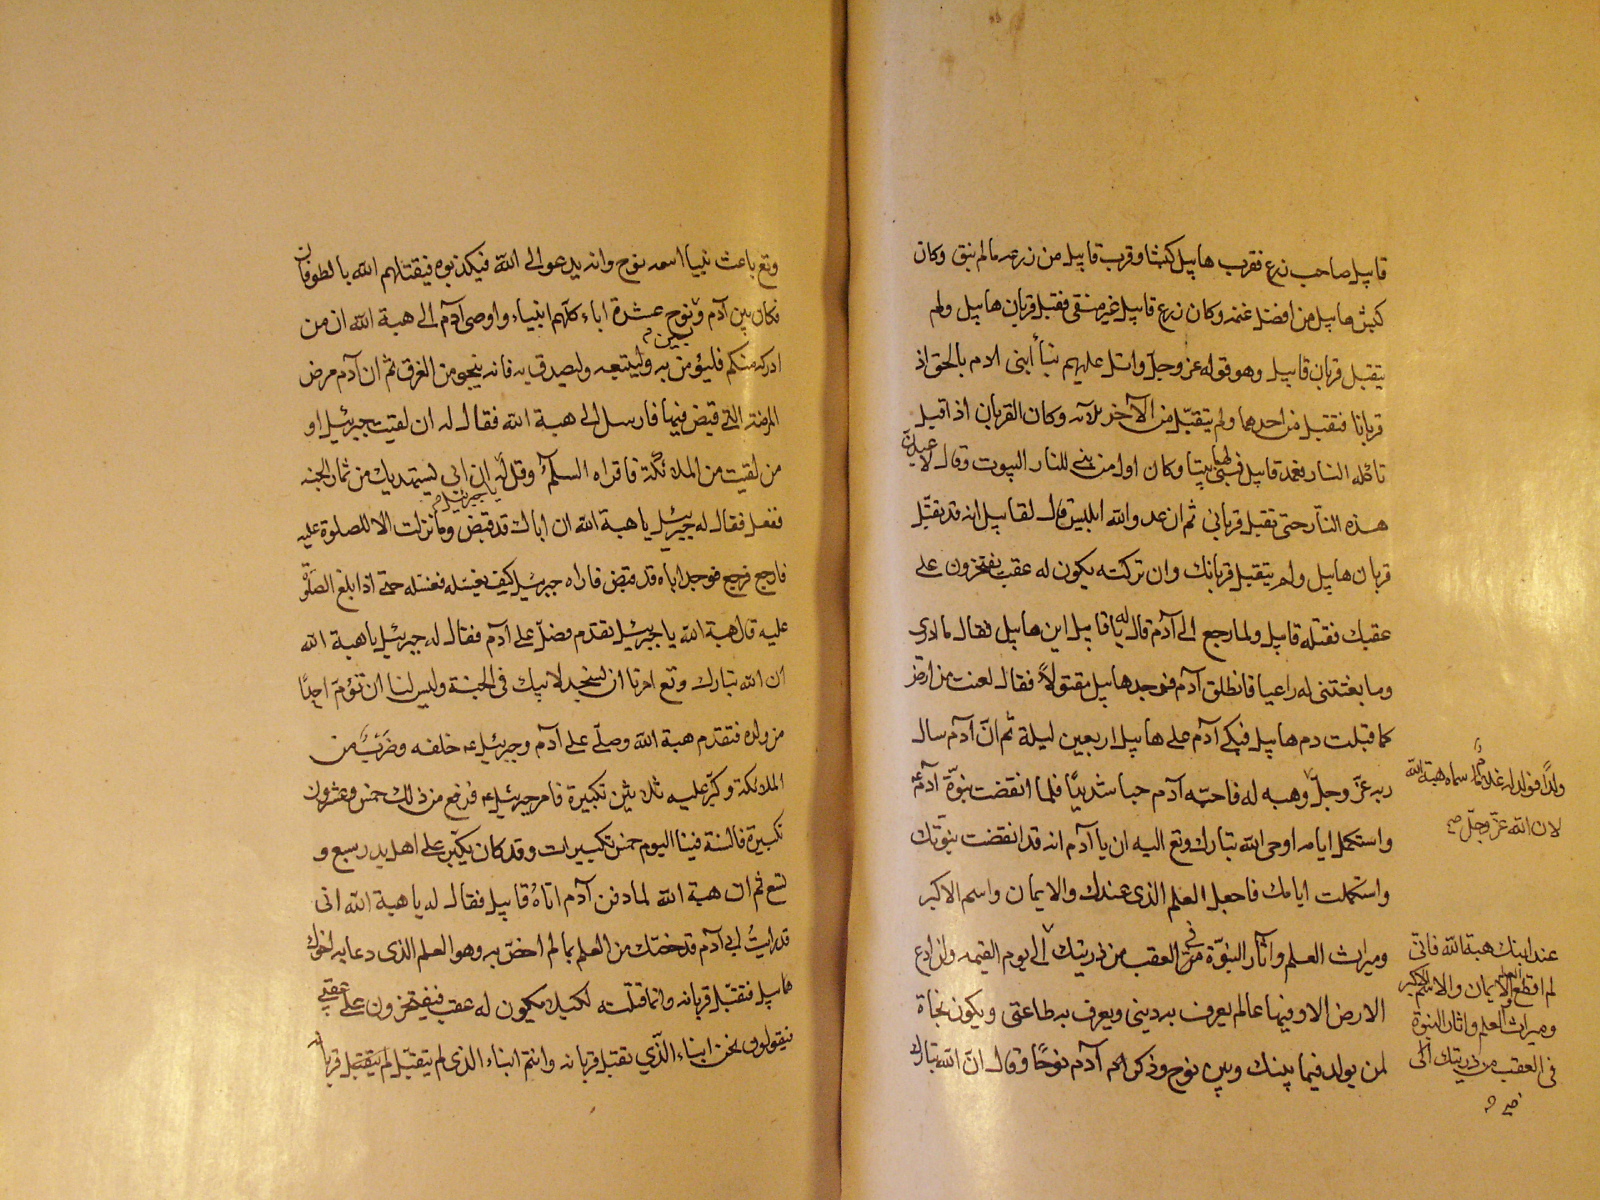 قابيل صاحب زرع فقرب هابيل كبشا وقرب قابيل من زرعه ما لم ينق وكان
كبش هابيل من افضل غنمه وكان زرع قابيل غير منقى فقبل قربان هابيل ولم
يتقبل قربان قابيل وهو قوله عز وجل واتل عليهم نبأ ابنى ادم بالحق اذ
قربانا فتقبل من احدهما ولم يتقبّل من الآخر الآيه وكان القربان اذا قبل
تاكله النار فعمد قابيل فبنى لها بيتا وكان اول من بنى للنار البيوت وقال لاعبدنّ
هذه النّار حتى تقبل قربانى ثم ان عدو الله ابليس قال لقابيل انه قد تقبّل
قربان هابيل ولم يتقبل قربانك وان تركته يكون له عقب يفتخرون على
عقبك فقتله قابيل ولما رجع الى آدم قال له يا قابيل اين هابيل فقال ما ادرى
وما بعثتنى له راعيا فانطلق آدم فوجد هابيل مقتولاً فقال لعنت من ارض
كما قبلت دم هابيل فبكى آدم على هابيل اربعين ليلة ثم انّ آدم سال
ربه عزّ وجلّ وهبه له فاحبّه آدم حبا شديدًا فلما انقضت نبوّة آدم ع
واستكمل ايامه اوحى الله تبارك وتع اليه ان يا آدم انه قد انقضت نبوّتك
واستكملت ايامك فاجعل العلم الذى عندك والايمان واسم الاكبر
وميراث العلم وآثار النبوّة فى العقب من ذريتك الى يوم القيمه ولن ادع
الارض الا وفيها عالم يعرف به دينى ويعرف به طاعتى ويكون نجاة
لمن يولد فيما بينك وبين نوح وذكر آدم نوحًا وقال انّ الله تبارك
ولدًا فولد له غلام سماه هبة الله
لان الله عزّ وجلّ صح
عند ابنك هبة الله فانى
لم اقطع العلم والايمان والاسم الاكبر
وميراث العلم واثار النبوة
فى العقب من ذريتك الى
صح
وتع باعث نبيا اسمه نوح وانه يدعو الى الله فيكذبوه فيقتلهم الله بالطوفان
فكان بين آدم ونوح عشرة اباء كلّهم انبياء واوصى آدم الى هبة الله ان من
ادركه منكم فليؤمن به وليتبعه وليصدق به فانه ينجو من الغرق ثم ان آدم مرض
المرضة التى قبض فيها فارسل الى هبة الله فقال له ان لقيت جبرئيل او
من لقيت من الملائكة فاقراه السلم وقل له يا جبرئيل ان ابى يستهديك من ثمار الجنه
ففعل فقال له جبرئيل يا هبة الله ان اباك قد قبض وما نزلت الا للصلوة عليه
فارجع فرجع فوجد اباه قد قبض فاراه جبرئيل كيف يغسله فغسله حتى اذا بلغ الصلوة
عليه قال هبة الله يا جبرئيل تقدم فصلّ على آدم فقال له جبرئيل يا هبة الله
ان الله تبارك وتع امرنا ان نسجد لابيك فى الجنة وليس لنا ان نؤمّ احدًا
من ولده فتقدم هبة الله وصلّى على آدم وجبرئيل ع خلفه وحزب من
الملائكة وكبّر عليه ثلاثين تكبيرة فامر جبرئيل ع فرفع من ذلك خمس وعشرون
تكبيرة فالسنة فينا اليوم خمس تكبيرات وقد كان يكبّر على اهل بدر سبع و
تسع ثم ان هبة الله لما دفن آدم اتاه قابيل فقال له يا هبة الله انى
قد رايتُ ابى آدم قد خصّك من العلم بما لم اخصّ به وهو العلم الذى دعا به اخوك
هابيل فتقبّل قربانه وانما قتلته لكيلا يكون له عقب فيفتخرون على عقبى
فيقولون نحن ابناء الذّى تقبل قربانه وانتم ابناء الذى لم يتقبّل قربانه